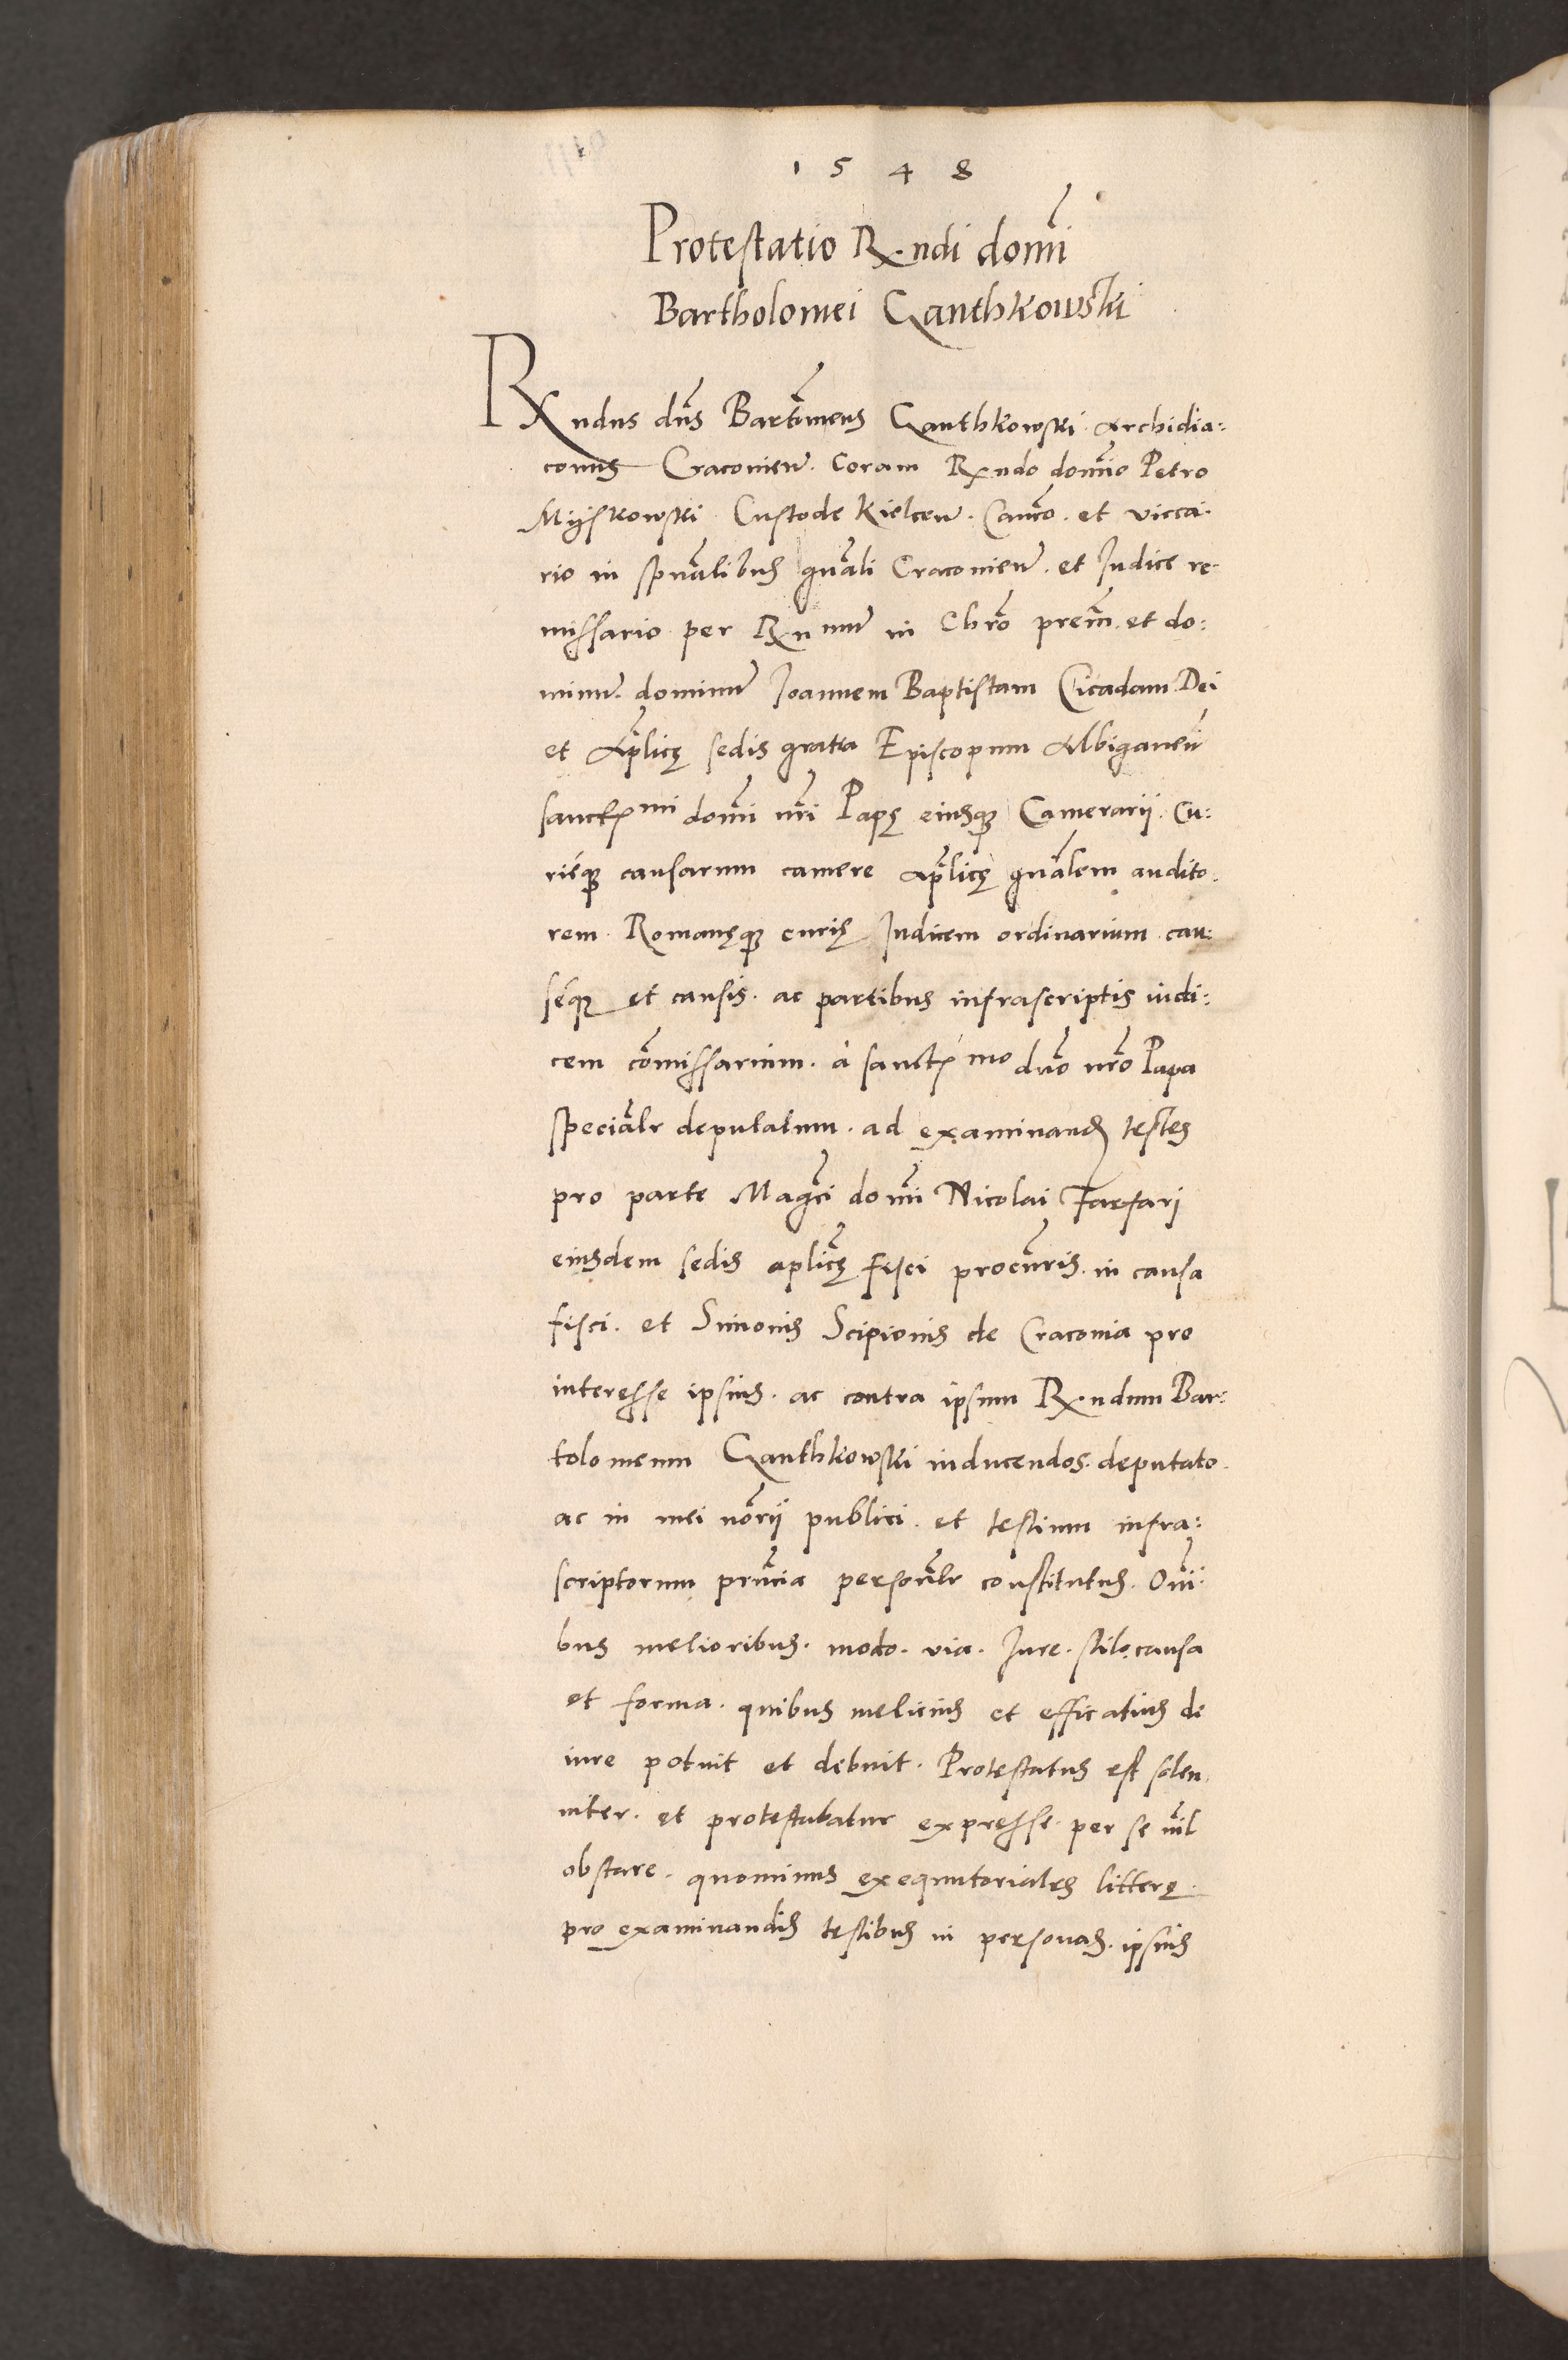 1548
Protestatio Rndi domi
Bartholomei Ganthkowski
Rndus dns Bartomeus Ganthkowski Archidia:
conus Cracovien. Coram Rndo domino Petro
Mijskowski Custode Kielcen. Canco. et vicca.
rio in spualibus gnali Cracovien. et Iudice re.
missario per Rnmum in Chro prem. et do:
minum. dominum Ioannem Baptistam Cicadam Dei
et Aplicę sedis gratia Episcopum Albiganen
sanctmi domi nri Papę eiusque Camerarii. Cu:
riéque causarum camere Aplicę gnalem audito.
rem. Romanęque curię Iudicem ordinarium cau:
séque et causis. ac partibus infrascriptis iudi:
cem comissarium. à sanctmo dno nro Papa
specialr deputatum. ad examinand testes
pro parte Magci domi Nicolai Farfari
eiusdem sedis aplicę fisci procuris. in causa
fisci. et Simonis Scipionis de Cracovia pro
interesse ipsius. ac contra ipsum Rndum Bar:
tolomeum Ganthkowski inducendos. deputato.
ac in mei norii publici. et testium infra:
scriptorum prncia personalr constitutus. Omi:
bus melioribus. modo. via. Iure. stilo. causa
et forma. quibus melicius et efficatius de
iure potuit et debuit. Protestatus est solen
niter. et protestabatur expresse per se nil
obstare. quominus exequutoriales litterę.
pro examinandis testibus in personas. ipsius